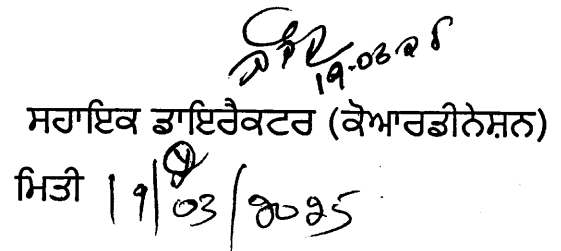 19-03-25
ਸਹਾਇਕ ਡਾਇਰੈਕਟਰ (ਕੋਆਰਡੀਨੇਸ਼ਨ)
ਮਿਤੀ 19/03/2025